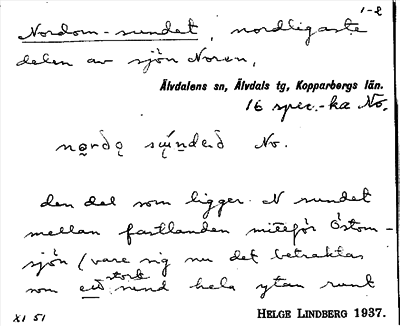 1-2
Nordom-sundet, nordligaste
delen av sjön Noren,
Älvdalens sn, Älvdals tg, Kopparbergs län.
16 spec.-ka No.
No.
den del som ligger N sundet
mellan fastlanden mittför Östom-
sjön (vare sig nu det betraktas
som ett stort sund hela ytan runt
XI 51
HELGE LINDBERG 1937.